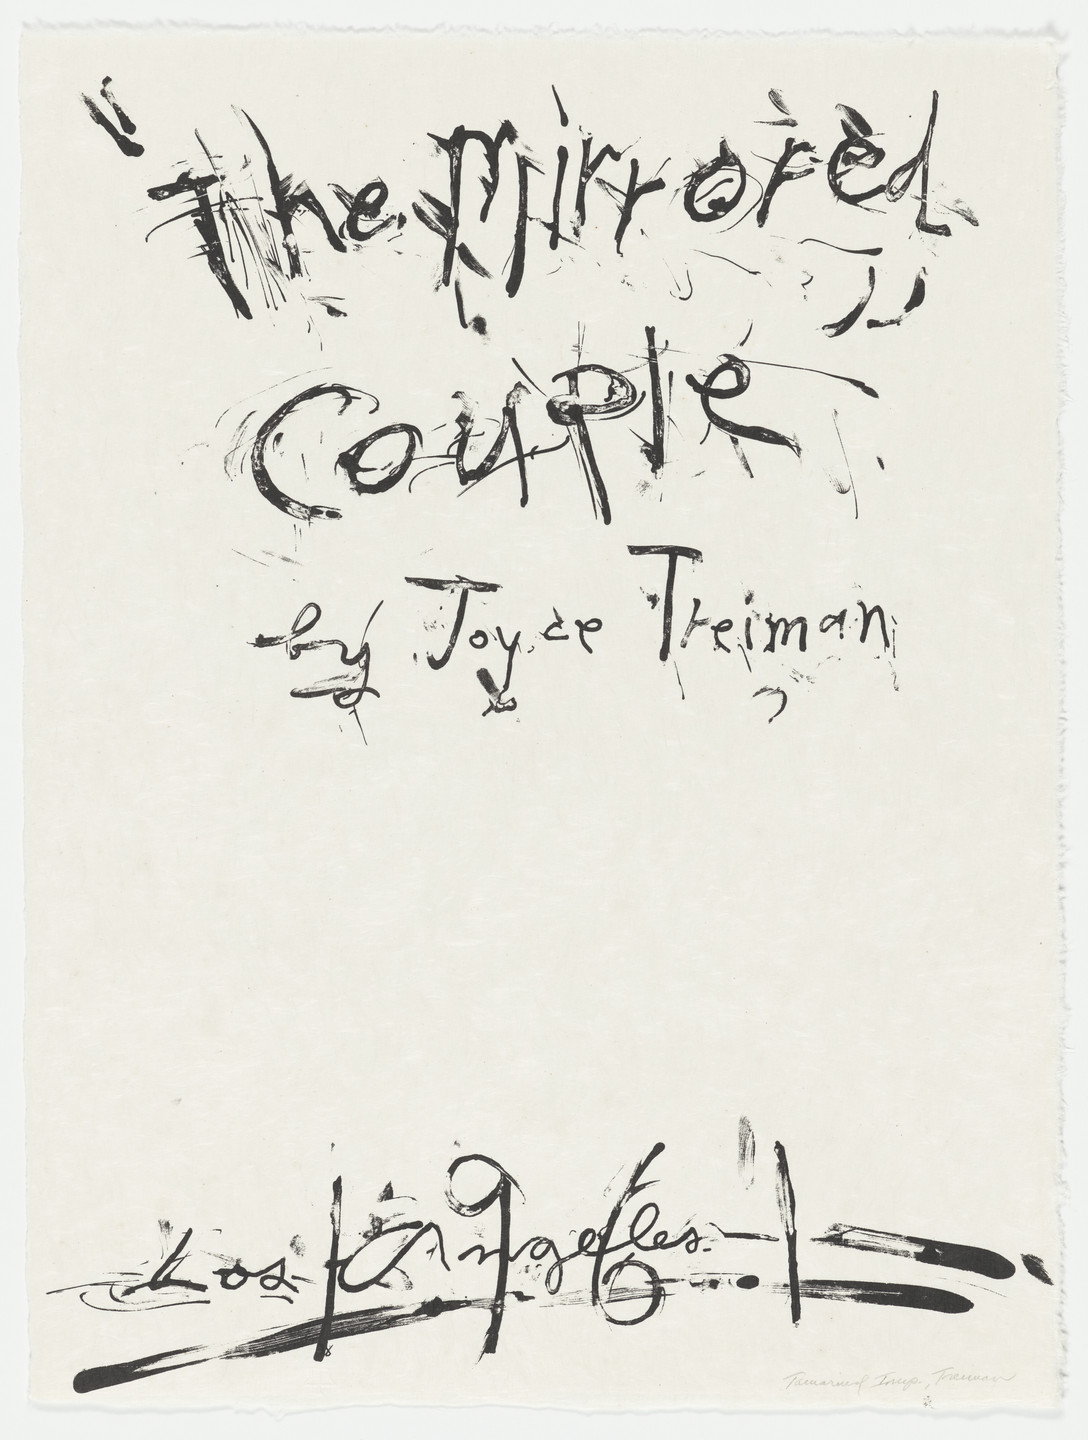 "The Mirrored"
Couple
by Joyce Treiman
Los Angeles
1961
Tamarind Imp., Treiman